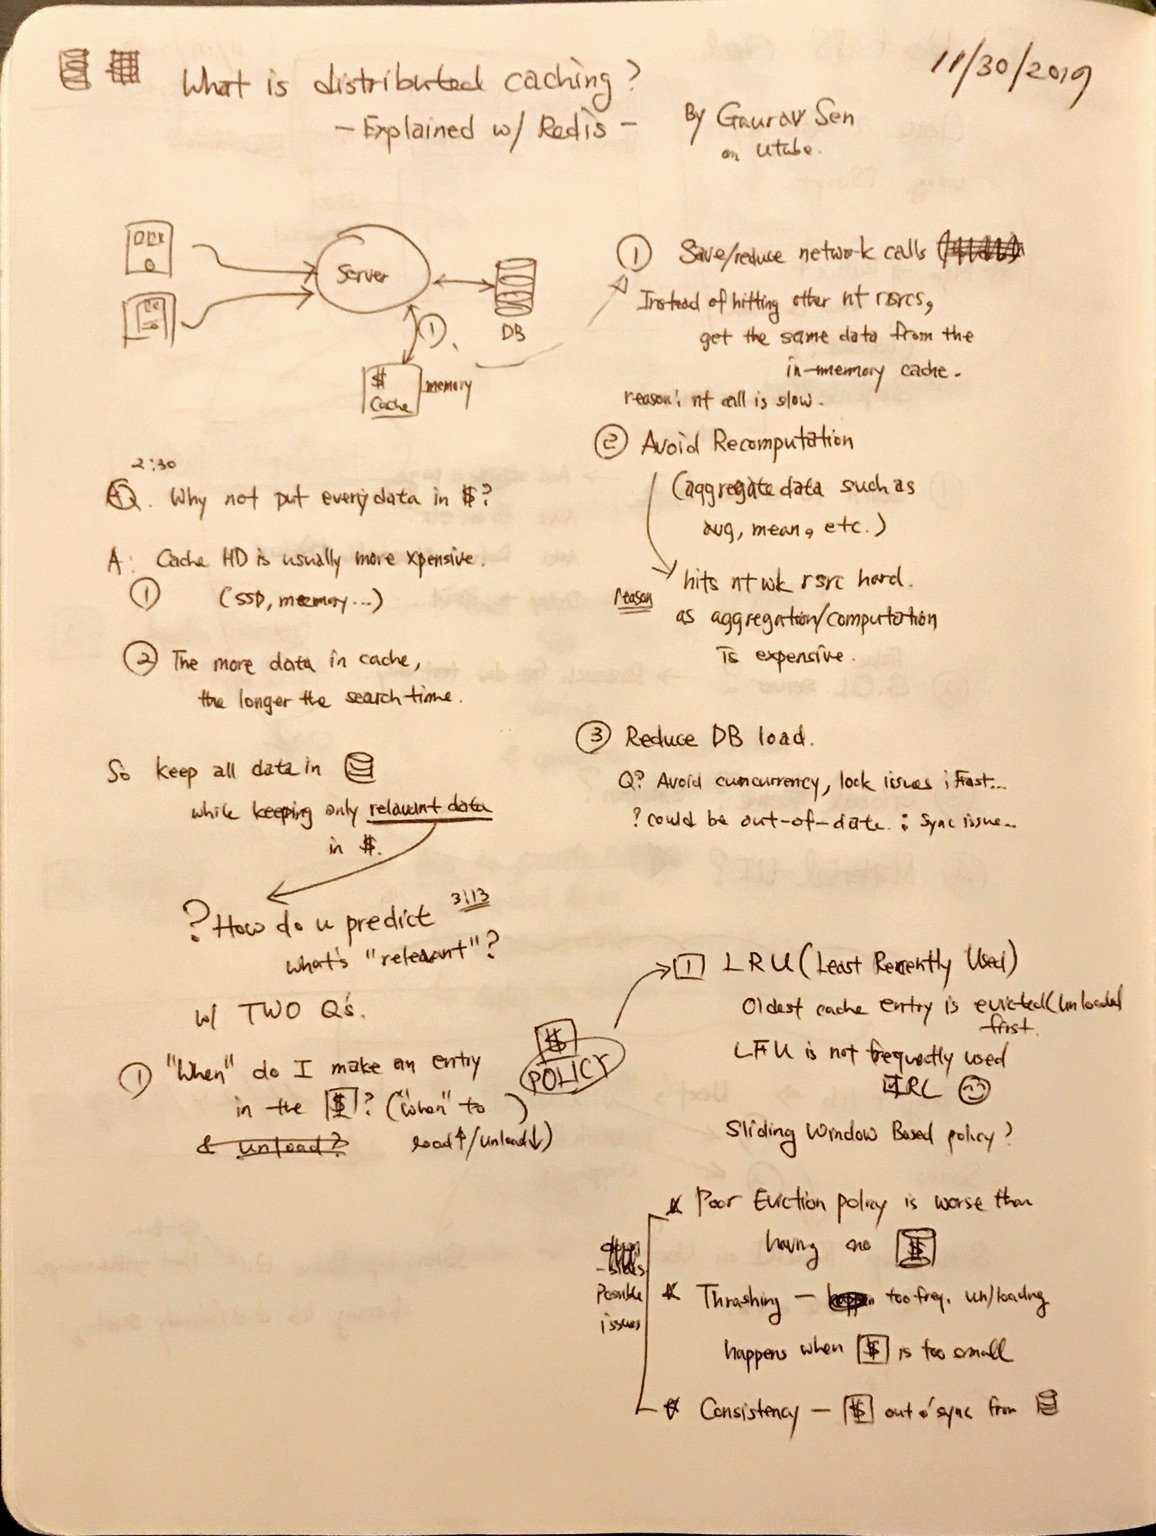 What is distributed caching?
- Explained w/ Redis -
By Gaurav Sen
on Utube.
11/30/2019
Server
DB
①
$
Cache
memory
① Save/reduce network calls
Instead of hitting other nt rsrcs,
get the same data from the
in-memory cache.
reason: nt call is slow.
② Avoid Recomputation
(aggregate data such as
avg, mean, etc.)
hits ntwk rsrc hard.
reason
as aggregation/computation
is expensive.
③ Reduce DB load.
Q? Avoid cuncurrency, lock issues ; Fast...
? could be out-of-date. : Sync issue...
2:30
Q. Why not put every data in $?
A: Cache HD is usually more xpensive.
① (SSD, memory...)
② The more data in cache,
the longer the search time.
So keep all data in
while keeping only relavant data
in $.
? How do u predict 3:13
what's "relevant"?
w/ TWO Q's.
① "When" do I make an entry
in the $? ("when" to )
& unload? load↑/unload↓)
$
POLICY
1 LRU (Least Recently Used)
Oldest cache entry is evicted(unloaded
first.
LFU is not frequently used
IRL
Sliding Window Based policy?
possible
issues
* Poor Eviction policy is worse than
having no $
* Thrashing - too freq. un/loading
happens when $ is too small
* Consistency - $ out o' sync from